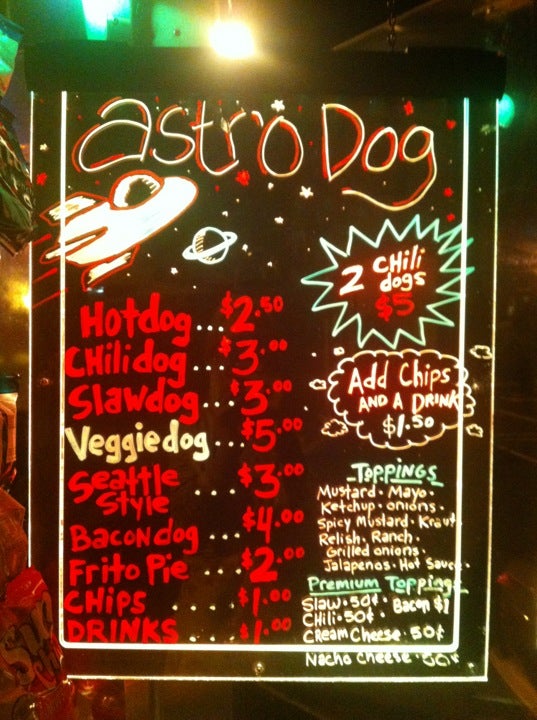 astro Dog
2 CHili
dogs
$5
Hotdog...$2.50
CHili dog...$3.00
Slawdog...$3.00
Veggiedog...$5.00
Seattle
Style ...$3.00
BACON dog ...$4.00
Frito Pie ...$2.00
CHips ....$1.00
DRINKS ...$1.00
Add Chips
AND A DRINK
$1.50
Toppings
Mustard. Mayo.
Ketchup. onions.
Spicy Mustard. Kraut
Relish. Ranch.
Grilled onions.
Jalapenos. Hot Sauce.
Premium Toppings
Slaw.50¢. Bacon $1
CHili.50¢.
CReam Cheese.50¢
Nacho Cheese.50¢